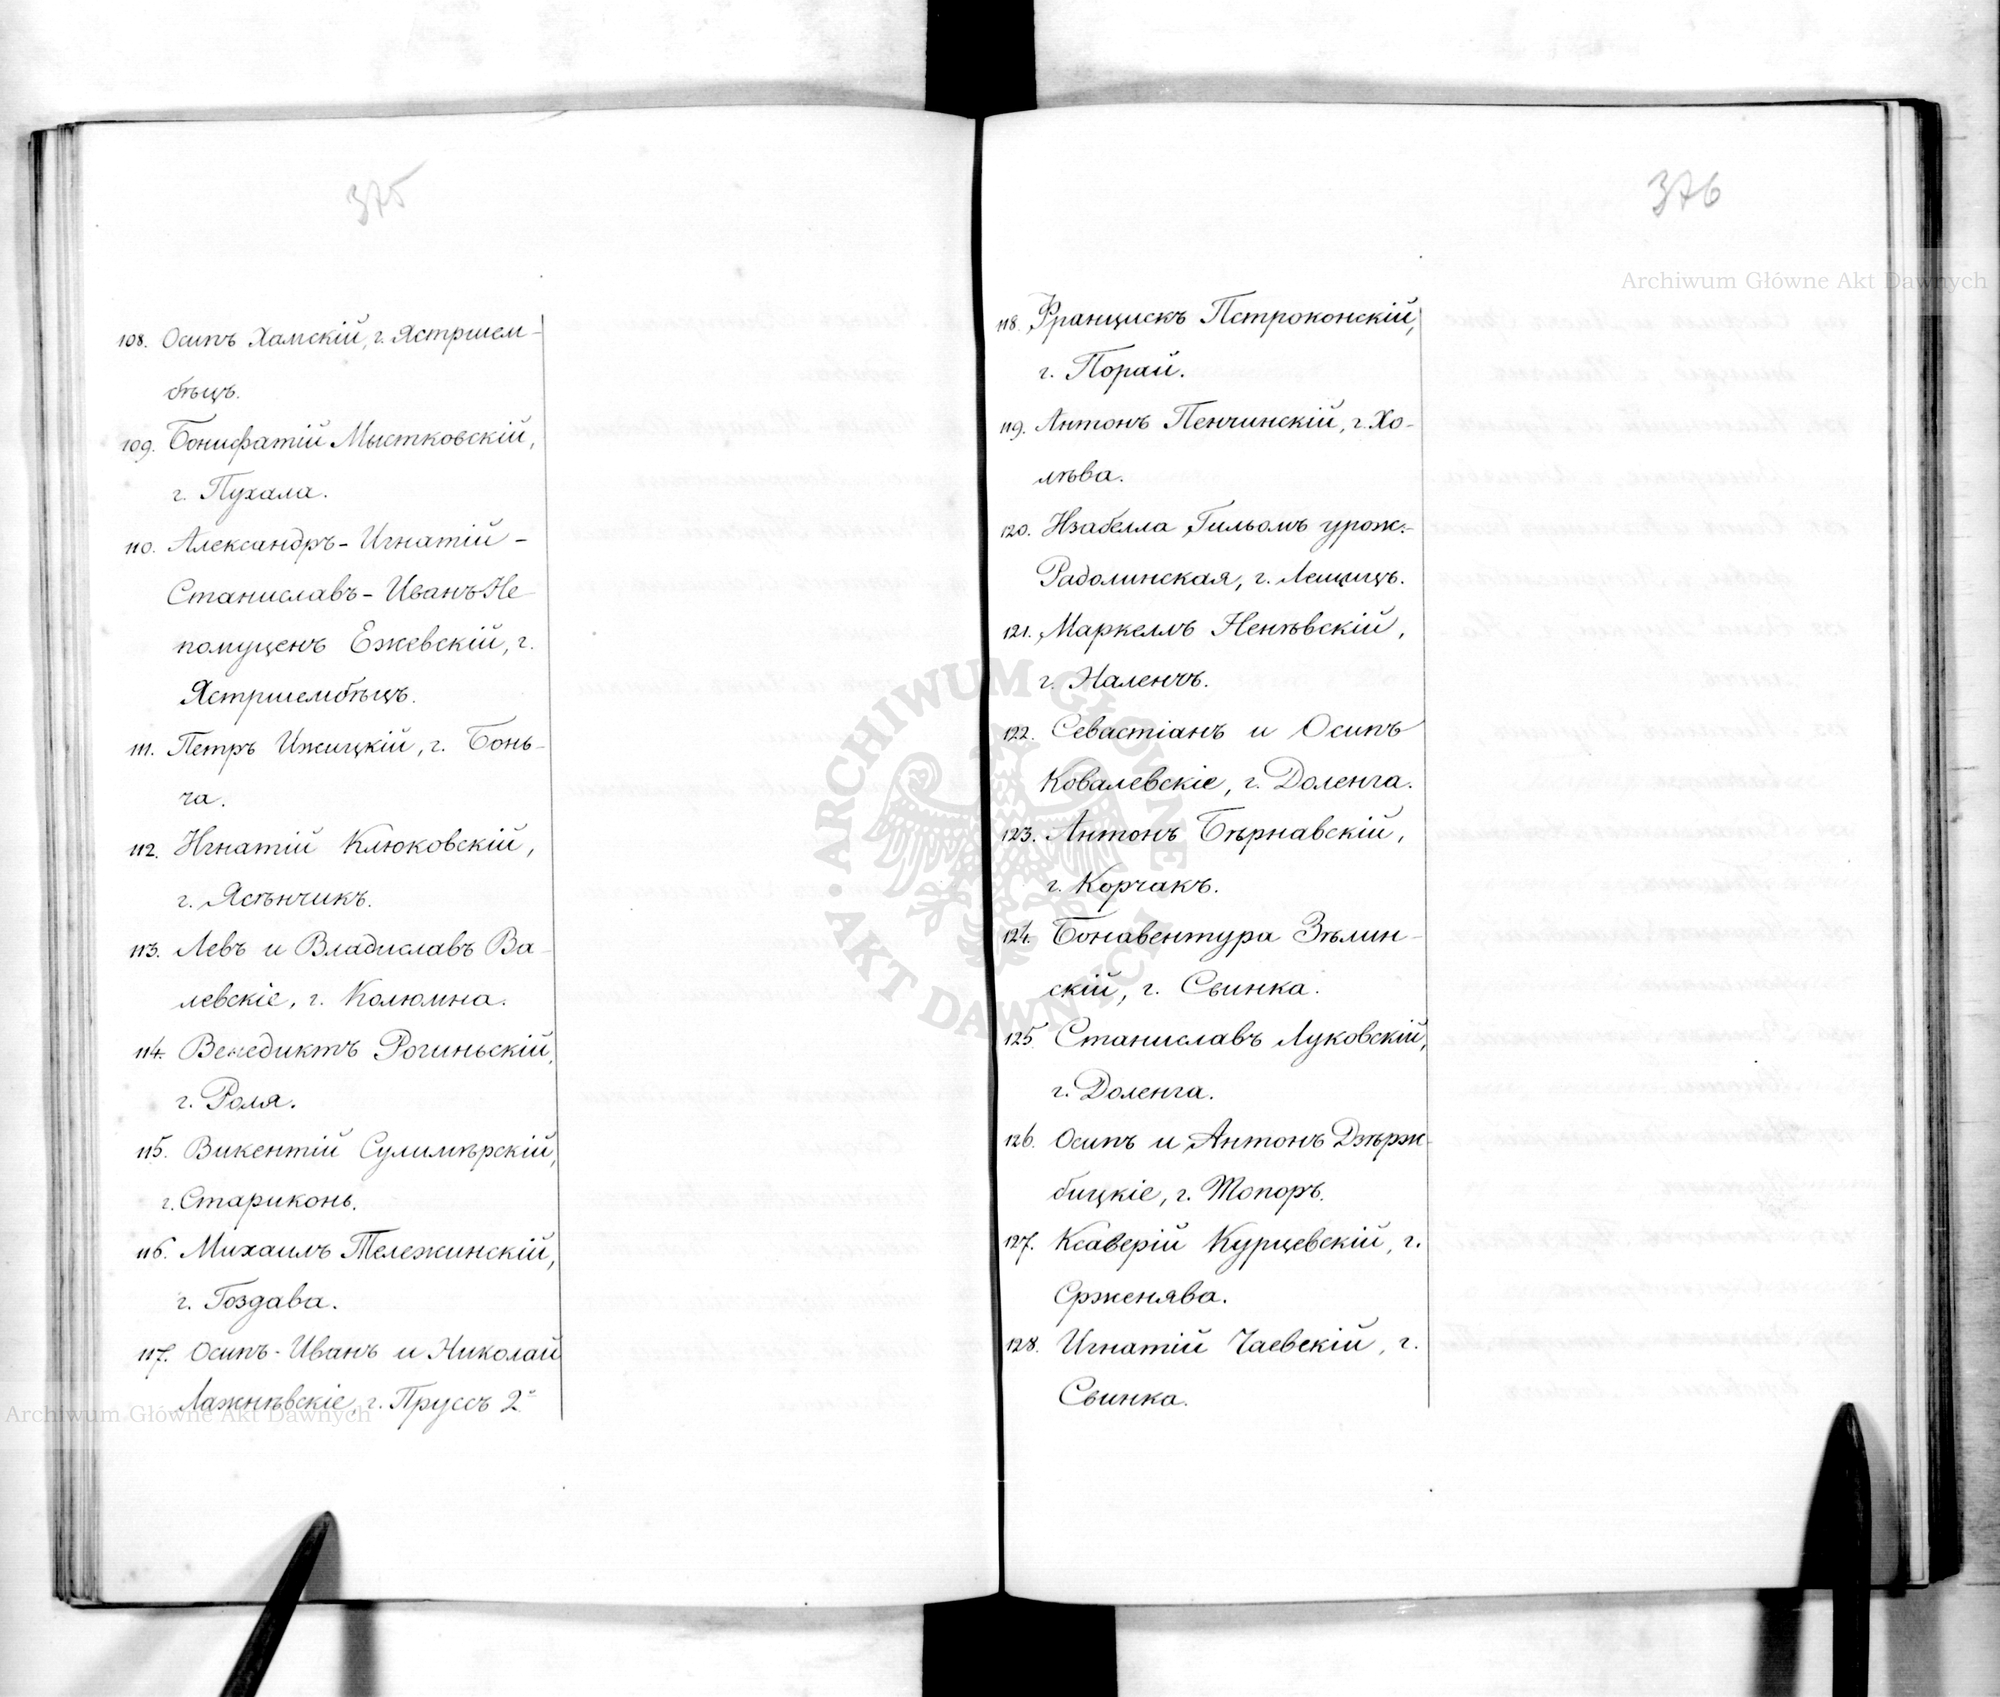 375
108. Осипъ Хамскій, г. Ястршем-
бѣцъ.
109. Бонифатій Мыстковскій,
г. Пухала.
110. Александръ-Игнатій-
Станиславъ-Иванъ Не-
помуценъ Ежевскій, г.
Ястршембѣцъ.
111. Петръ Ижицкій, г. Бонь-
ча.
112. Игнатій Клюковскій,
г. Ясѣнчикъ.
113. Левъ и Владиславъ Ва-
левскіе, г. Колюмна.
114. Венедиктъ Рогиньскій,
г. Роля.
115. Викентій Сулимѣрскій,
г. Стариконь.
116. Михаилъ Тележинскій,
г. Гоздава.
117. Осипъ-Иванъ и Николай
Лажнѣвскіе, г. Пруссъ 2º
Archiwum Główne Akt Dawnych
376
Archiwum Główne Akt Dawnych
118. Францискъ Пстроконскій,
г. Порай.
119. Антонъ Пенчинскій, г. Хо-
лѣва.
120. Изабелла Гильомъ урож.
Радолинская, г. Лещицъ.
121. Маркеллъ Ненѣвскій,
г. Наленчъ.
122. Севастіанъ и Осипъ
Ковалевскіе, г. Доленга.
123. Антонъ Бѣрнавскій,
г. Корчакъ.
124. Бонавентура Зѣлин-
скій, г. Свинка.
125. Станиславъ Луковскій,
г. Доленга.
126. Осипъ и Антонъ Дзѣрж-
бицкіе, г. Топоръ.
127. Ксаверій Курцевскій, г.
Срженява.
128. Игнатій Чаевскій, г.
Свинка.
ARCHIWUM GŁÓWNE
AKT DAWNYCH